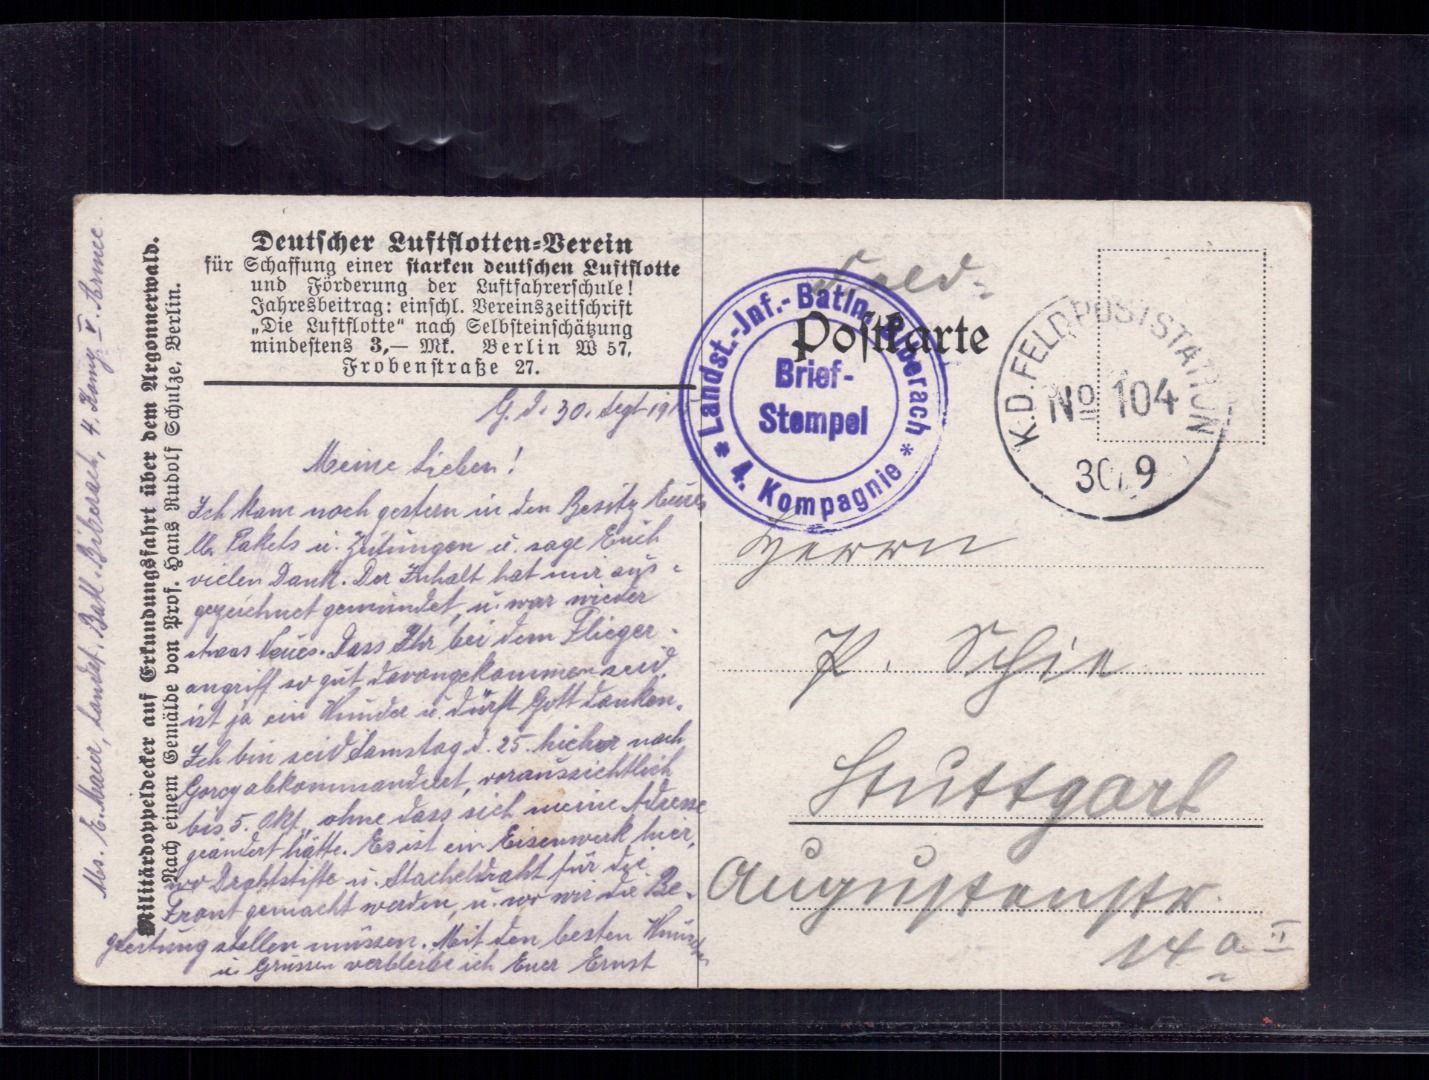 Deutscher Luftflotten-Verein
für Schaffung einer starken deutschen Luftflotte
und Förderung der Luftfahrerschule!
Jahresbeitrag: einschl. Vereinszeitschrift
„Die Luftflotte“ nach Selbsteinschätzung
mindestens 3,— Mk. Berlin W 57,
Frobenstraße 27.
G. d. 30. Sept 1915
Meine Lieben!
Ich kam noch gestern in den Besitz Eures
lb. Pakets u. Zeitungen u. sage Euch
vielen Dank. Der Inhalt hat mir aus-
gezeichnet gemundet, u. war wieder
etwas Neues. Dass Ihr bei dem Flieger-
angriff so gut davongekommen seid,
ist ja ein Wunder u. dürft Gott danken.
Ich bin seid Samstag d. 25. hieher nach
Gorcy abkommandiert, voraussichtlich
bis 5. Okt, ohne dass sich meine Adresse
geändert hätte. Es ist ein Eisenwerk hier,
wo Drahtstifte u. Stacheldraht für die
Front gemacht werden, u. wo wir die Be-
gleitung stellen müssen. Mit den besten Wünschen
u. Grüssen verbleibe ich Euer Ernst
Abs. E. Maier, Landst. Batl. Biberach, 4. Komp. V. Armee
Militärdoppeldecker auf Erkundungsfahrt über dem Argonnerwald.
Nach einem Gemälde von Prof. Hans Rudolf Schulze, Berlin.
Feld-
Postkarte
Landst.-Inf.-Batln. Biberach
Brief-
Stempel
* 4. Kompagnie *
K.D. FELDPOSTSTATION
No 104
30/9
Herrn
P. Schie
Stuttgart
Augustenstr.
14a II